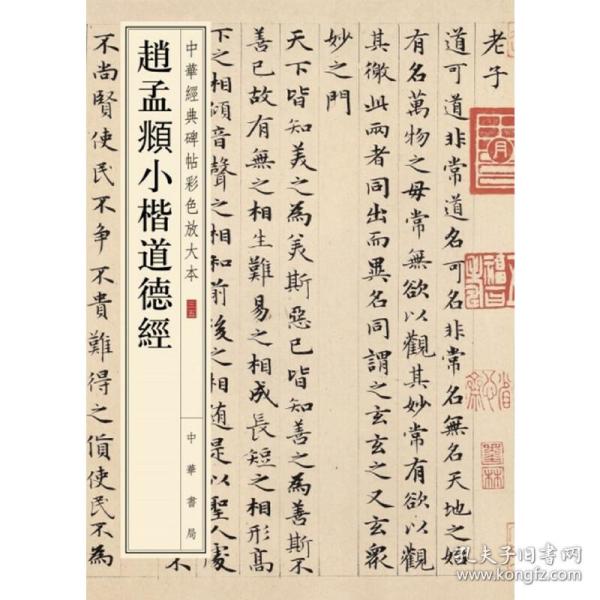 老子
道可道非常道名可名非常名無名天地之始
有名萬物之母常無欲以觀其妙常有欲以觀
其徼此兩者同出而異名同謂之玄玄之又玄衆
妙之門
天下皆知美之為美斯惡已皆知善之為善斯不
善已故有無之相生難易之相成長短之相形高
下之相傾音聲之相和前後之相随是以聖人處
中華經典碑帖彩色放大本 三五
中華書局
趙孟頫小楷道德經
不
不尚賢使民不争不貴難得之貨使民不為
孔夫子旧书网
www.kongfz.com